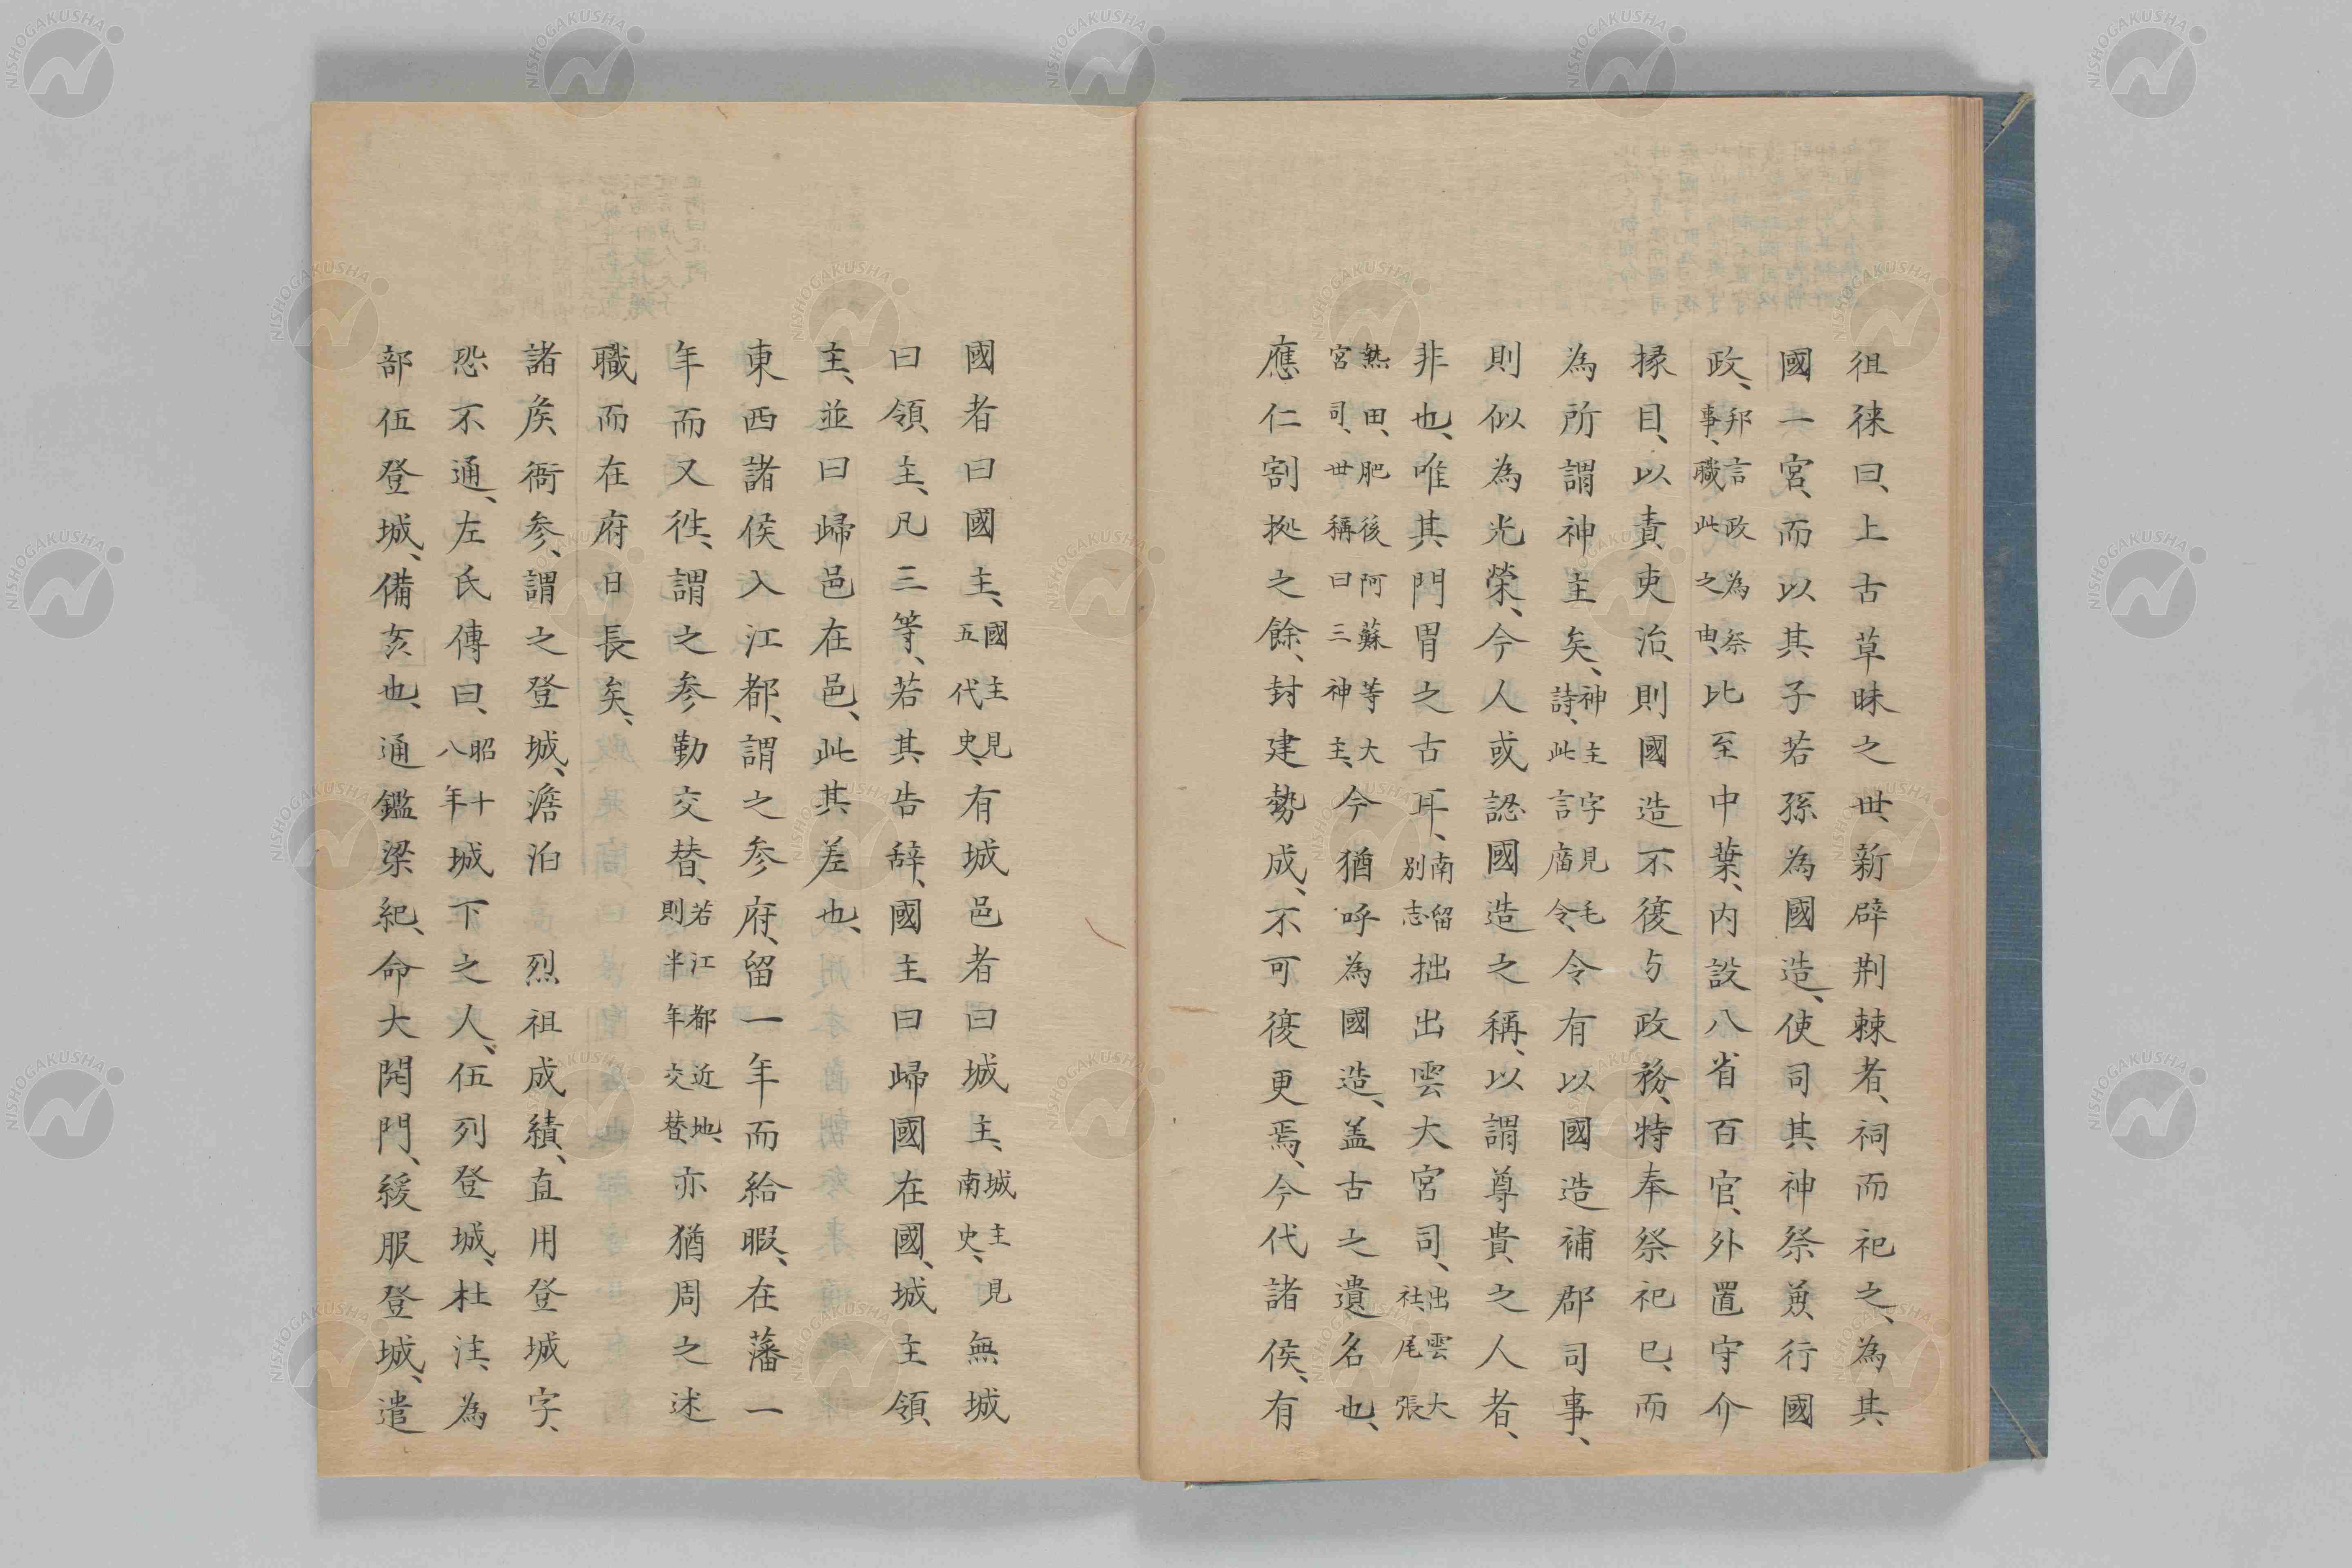 徂徠曰、上古草昧之世、新辟荆棘者、祠而祀之、為其
國一宮、而以其子若孫為國造、使司其神祭兼行國
政、邦言政為祭事、職此之由、比至中葉、内設八省百官、外置守介
掾目、以責吏治、則國造不復与政務、特奉祭祀已、而
為所謂神主矣、神主字見毛詩、此言廟令、令有以國造補郡司事、
則似為光榮、今人或認國造之稱、以謂尊貴之人者、
非也、唯其門胄之古耳、南留別志拙出雲大宮司、出雲大社、尾張
熱田、肥後阿蘇等大宮司、世稱曰三神主、今猶呼為國造、盖古之遺名也、
應仁割拠之餘、封建勢成、不可復更焉、今代諸侯、有
國者曰國主、國主見五代史、有城邑者曰城主、城主見南史、無城
曰領主、凡三等、若其告辞、國主曰歸國在國、城主領
主、並曰歸邑在邑、此其差也、
東西諸侯入江都、謂之参府、留一年而給暇、在藩一
年而又徃、謂之参勤交替、若江都近地、則半年交替、亦猶周之述
職而在府日長矣、
諸矦衙参、謂之登城、澹泊 烈祖成績、直用登城字、
恐不通、左氏傳曰、昭十八年城下之人、伍列登城、杜注、為
部伍登城、備亥也、通鑑梁紀、命大開門、緩服登城、遣
NISHOGAKUSHA